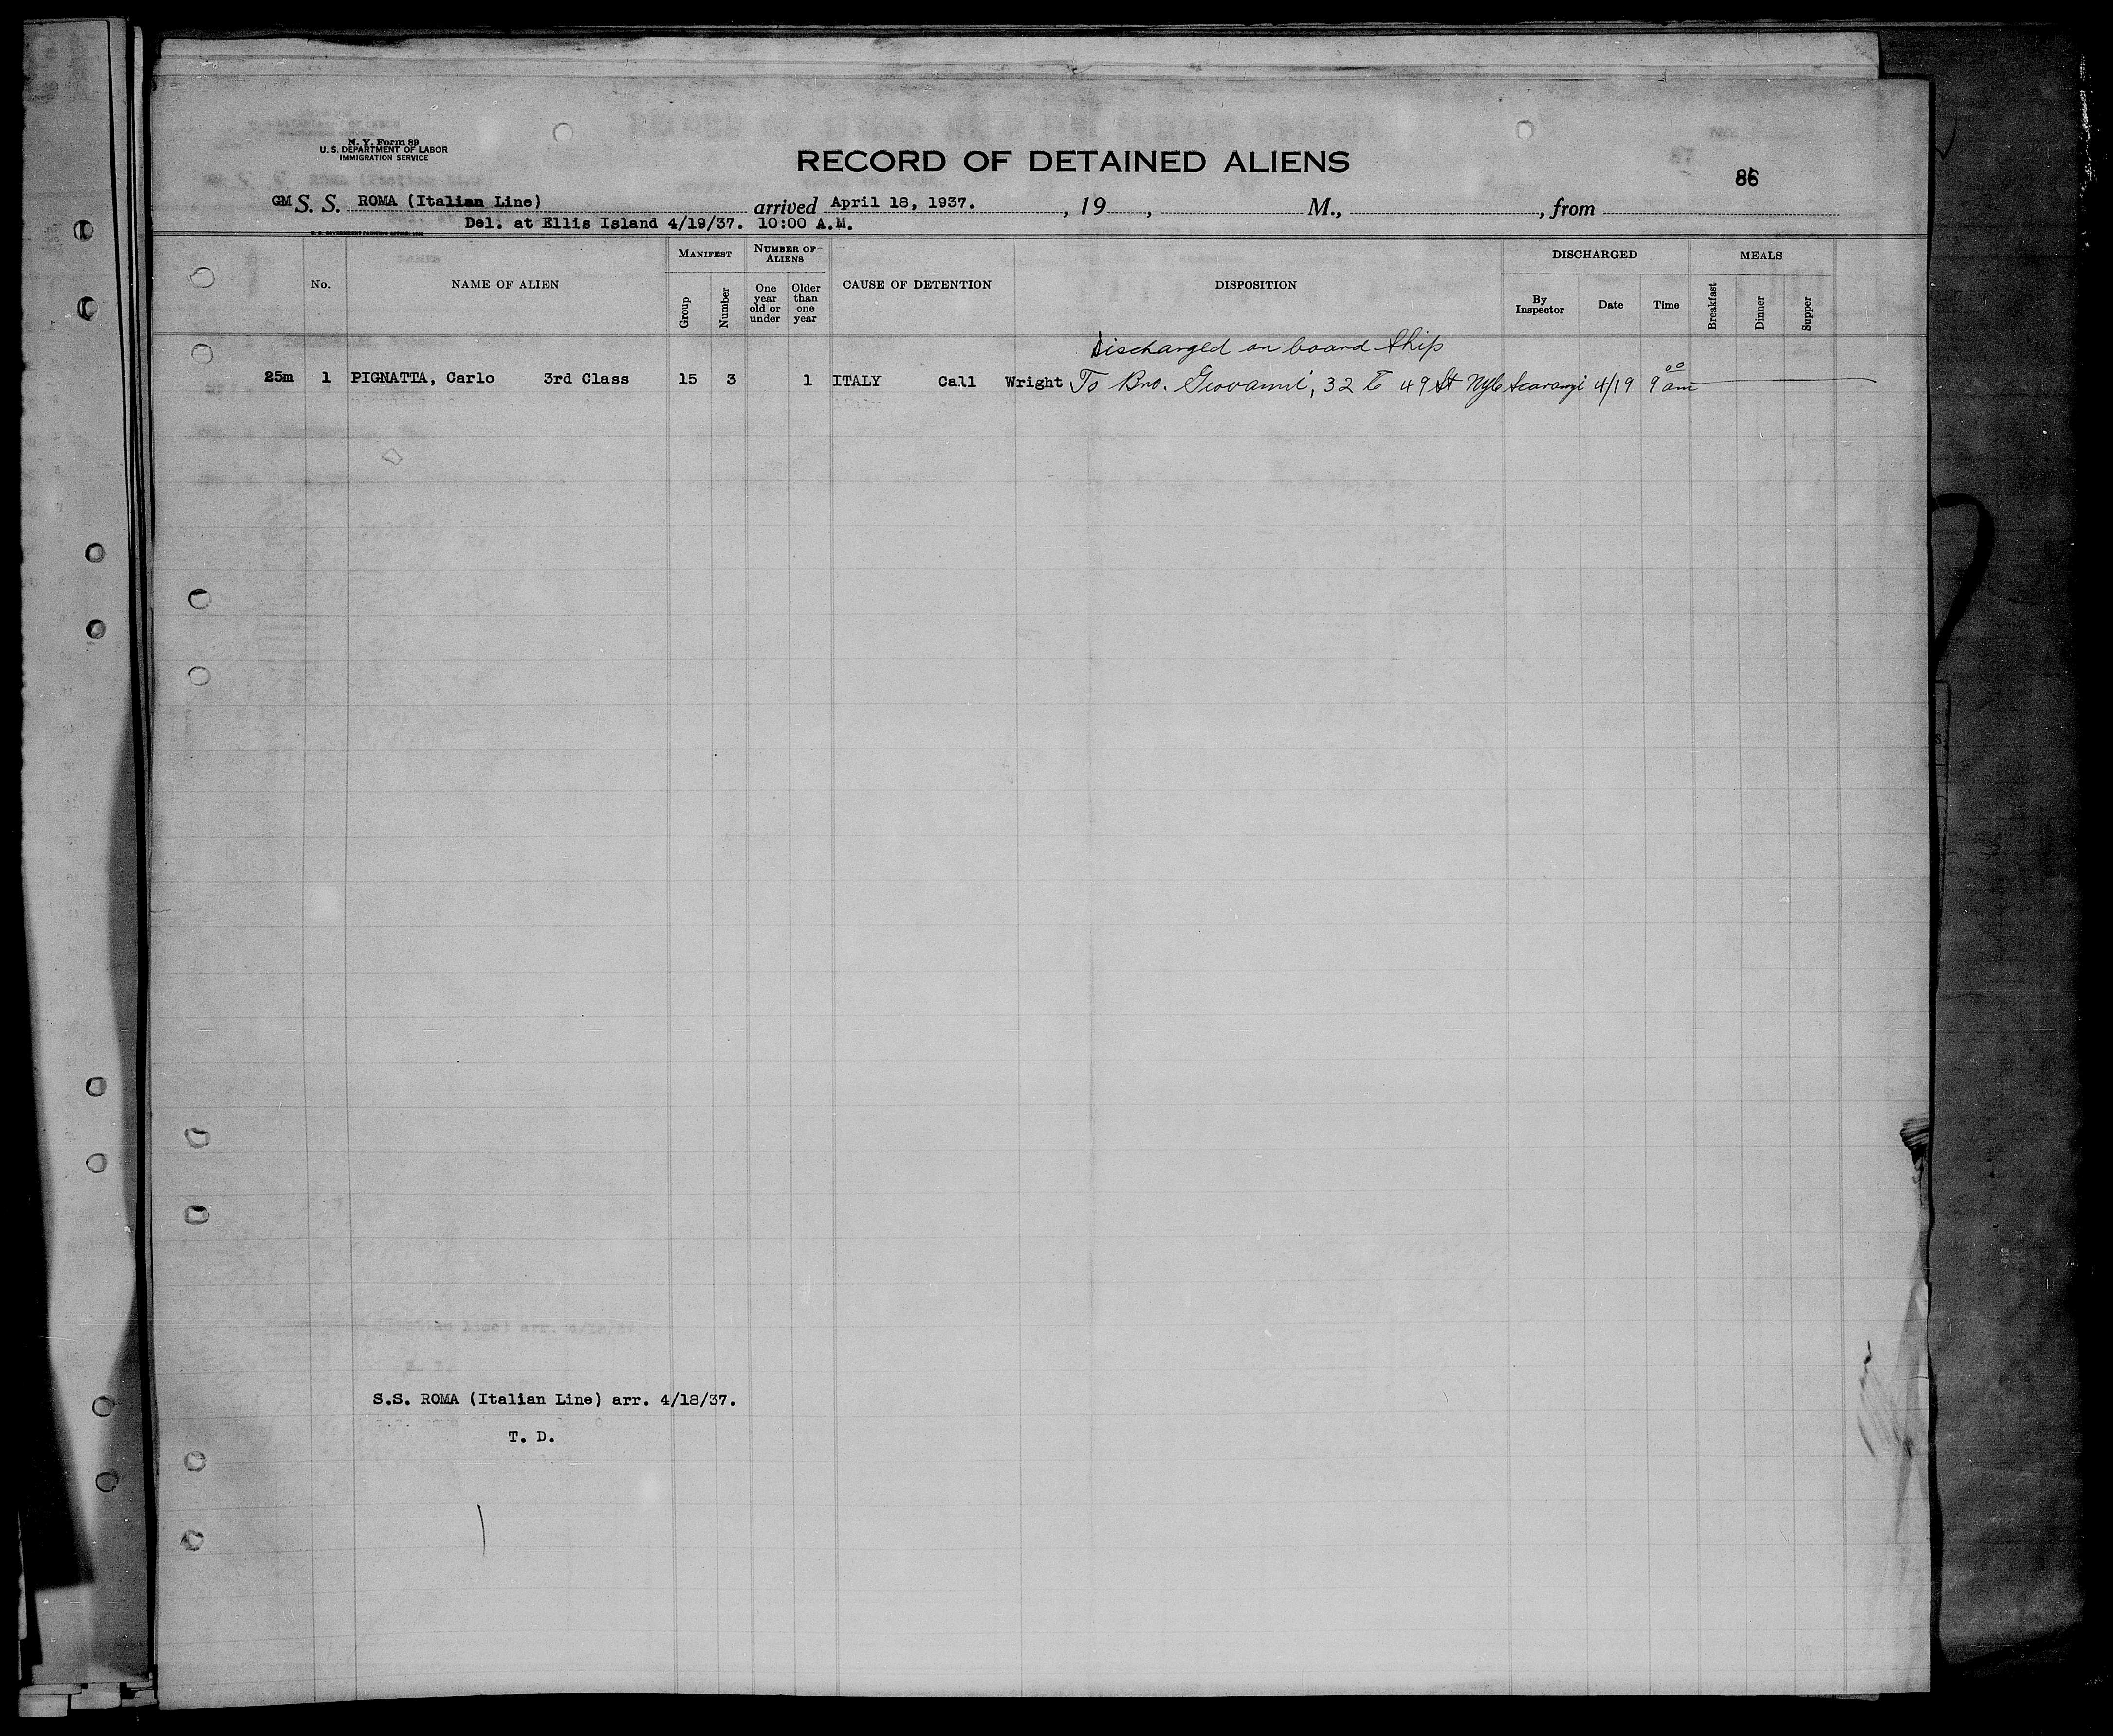 N. Y. Form 89
U. S. DEPARTMENT OF LABOR
IMMIGRATION SERVICE
RECORD OF DETAINED ALIENS
86
S. S. ROMA (Italian Line) arrived April 18, 1937. , 19 , M., , from
Del. at Ellis Island 4/19/37. 10:00 A.M.
No. NAME OF ALIEN MANIFEST Group Number NUMBER OF ALIENS One year old or under Older than one year CAUSE OF DETENTION DISPOSITION DISCHARGED By Inspector Date Time MEALS Breakfast Dinner Supper
Discharged on board Ship
25m 1 PIGNATTA, Carlo 3rd Class 15 3 1 ITALY Call Wright To Bro. Giovanni, 32 E 49 St 4/19 9 00 am
S.S. ROMA (Italian Line) arr. 4/18/37.
T. D.